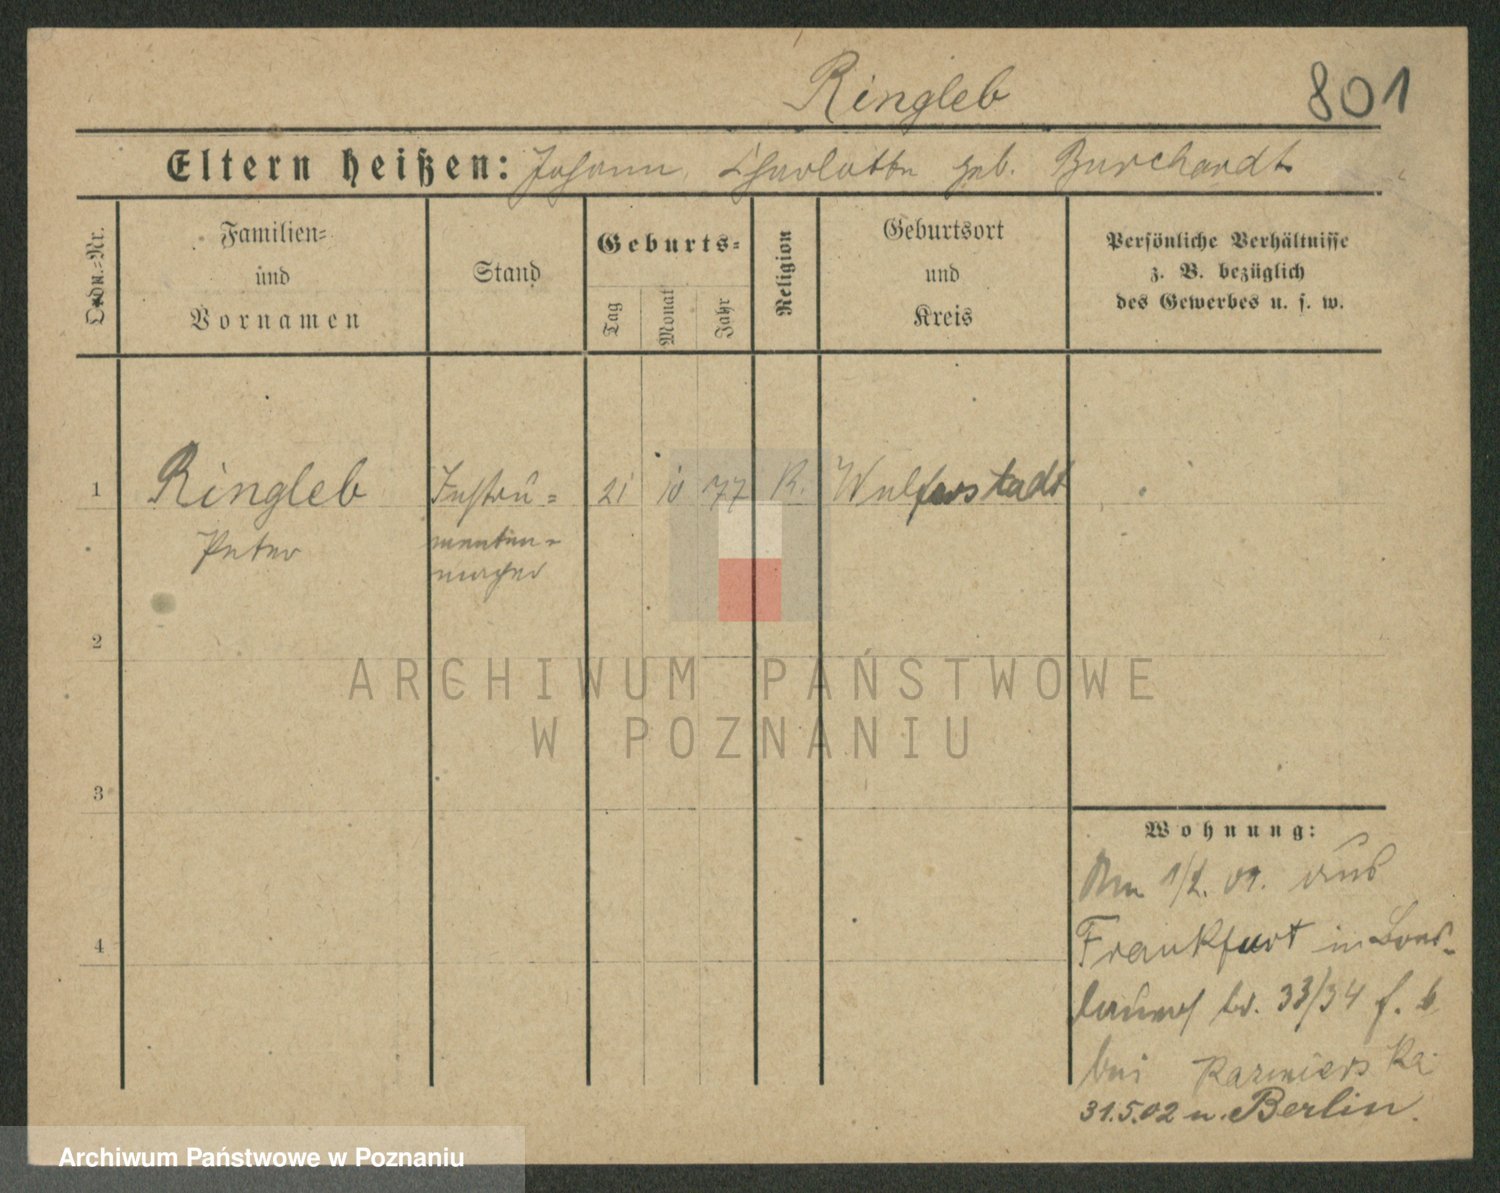 Ringleb 801
Eltern heißen: Johann, Charlotte geb. Burchardt
Ordn.-Nr.
Familien-
und
Vornamen
Stand
Geburts-
Tag
Monat
Jahr
Religion
Geburtsort
und
Kreis
Persönliche Verhältnisse
z. B. bezüglich
des Gewerbes u. s. w.
1 Ringleb Instru- 21 10 77 K. Wulferstadt
Peter menten-
macher
2
3
4
Wohnung:
Am 1/2. 02. aus
Frankfurt in
33/34 f. b
bei Kazmierska
31.5.02 n. Berlin.
ARCHIWUM PAŃSTWOWE
W POZNANIU
Archiwum Państwowe w Poznaniu